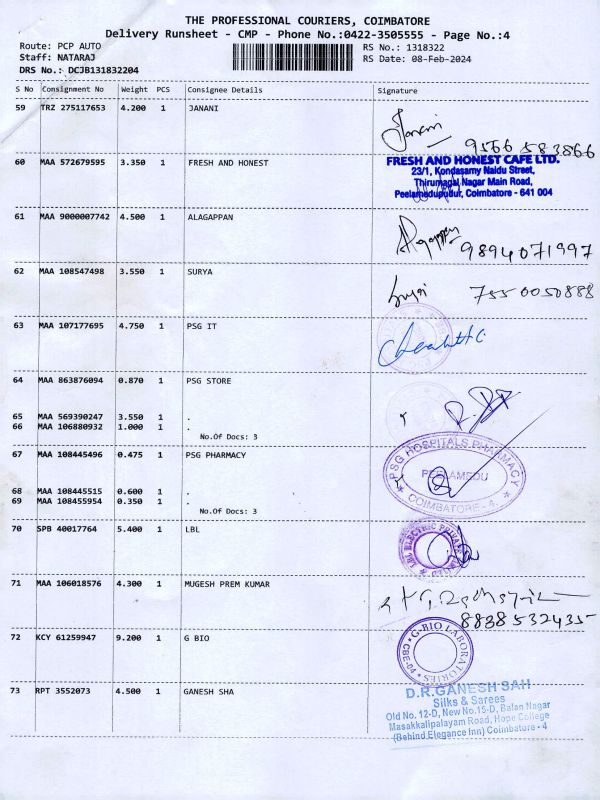 THE PROFESSIONAL COURIERS, COIMBATORE
Delivery Runsheet - CMP - Phone No.:0422-3505555 - Page No.:4
Route: PCP AUTO
Staff: NATARAJ
DRS No.: DCJB131832204
RS No.: 1318322
RS Date: 08-Feb-2024
S No Consignment No Weight PCS Consignee Details Signature
59 TRZ 275117653 4.200 1 JANANI
Janani
9566 583866
60 MAA 572679595 3.350 1 FRESH AND HONEST
FRESH AND HONEST CAFE LTD.
23/1, Kondasamy Naidu Street,
Thirumagal Nagar Main Road,
Peelamedupudur, Coimbatore - 641 004
61 MAA 9000007742 4.500 1 ALAGAPPAN
Alagappan
9894071997
62 MAA 108547498 3.550 1 SURYA
7550050888
63 MAA 107177695 4.750 1 PSG IT
64 MAA 863876094 0.870 1 PSG STORE
65 MAA 569390247 3.550 1 .
66 MAA 106880932 1.000 1 .
No.Of Docs: 3
67 MAA 108445496 0.475 1 PSG PHARMACY
PSG HOSPITALS PHARMACY
PEELAMEDU
COIMBATORE - 4.
68 MAA 108445515 0.600 1 .
69 MAA 108455954 0.350 1 .
No.Of Docs: 3
70 SPB 40017764 5.400 1 LBL
LBL ELECTRIC PRIVATE LIMITED
71 MAA 106018576 4.300 1 MUGESH PREM KUMAR
8838532435
72 KCY 61259947 9.200 1 G BIO
G-BIO LABORATORIES
CBE-04
73 RPT 3552073 4.500 1 GANESH SHA
D.R.GANESH SAH
Silks & Sarees
Old No. 12-D, New No.15-D, Balan Nagar
Masakkalipalayam Road, Hope College
(Behind Elegance Inn) Coimbatore - 4